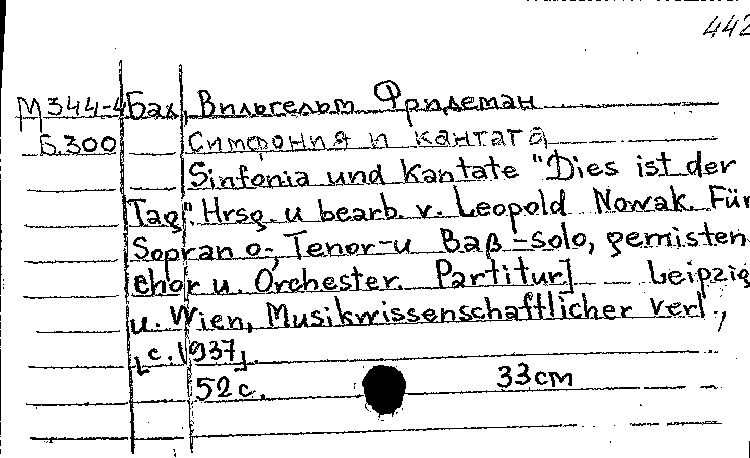 442
М344-4 Бах, Вильгельм Фридеман
Б.300 Симфония и кантата
Sinfonia und Kantate "Dies ist der
Tag". Hrsg. u bearb. v. Leopold Nowak. Für
Sopran o-, Tenor-u Baß-solo, gemisten
Chor u. Orchester. Partitur] Leipzig
u. Wien, Musikwissenschaftlicher Verl.,
[c. 1937].
52 c. 33 cm